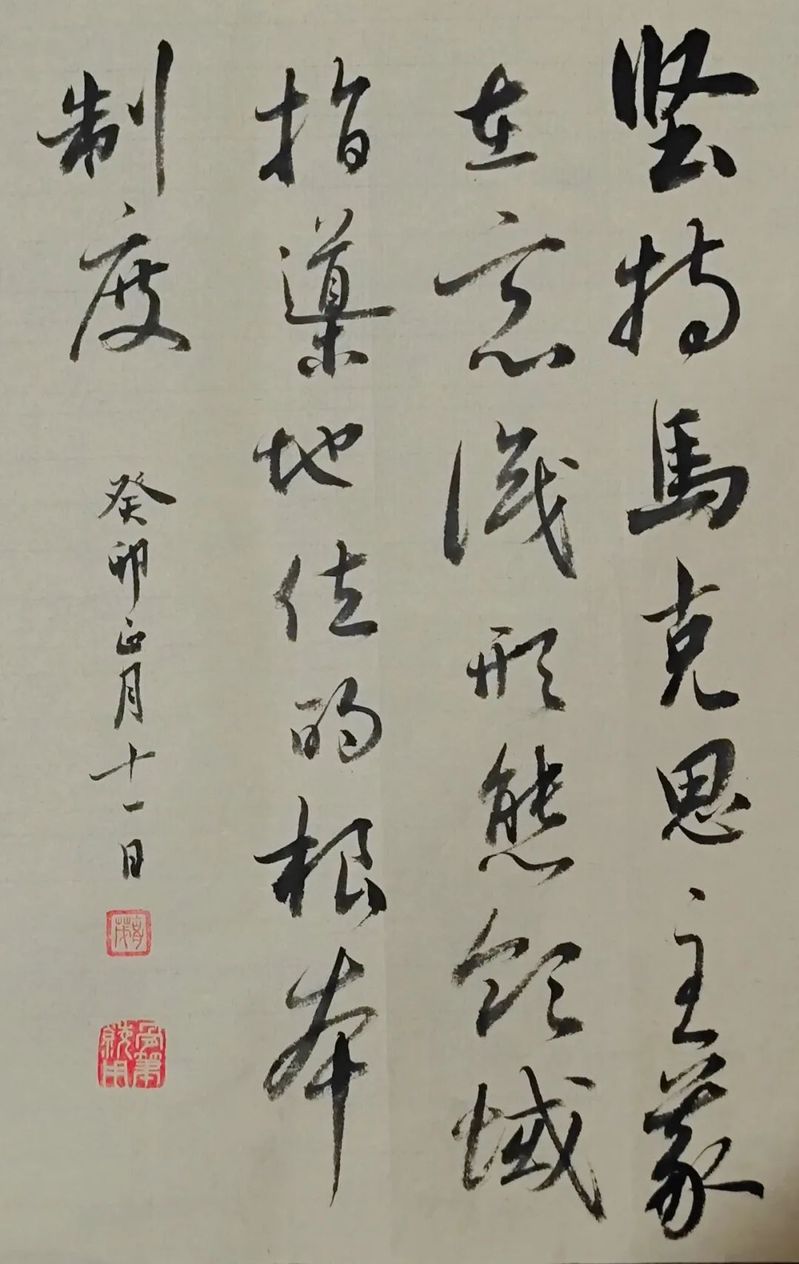 坚持馬克思主義
在意識形態領域
指導地位的根本
制度
癸卯正月十一日